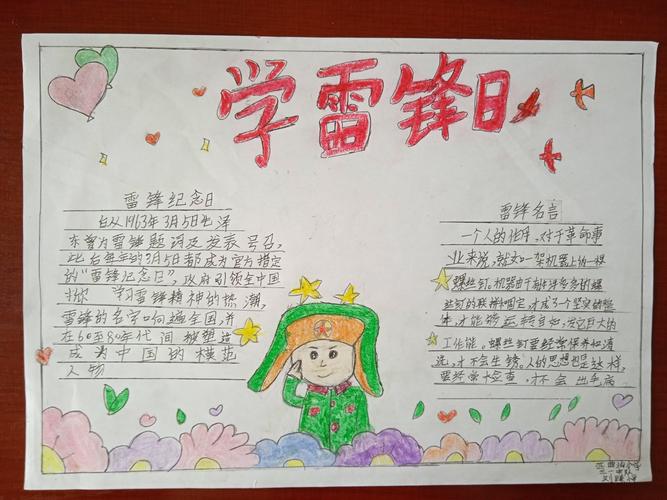 学雷锋日
雷锋纪念日
自从1963年3月5日毛泽
东曾为雷锋题词及发表号召,
此后每年的3月5日都成为官方指定
的"雷锋纪念日",政府引领全中国
掀 学习雷锋精神的热潮,
雷锋的名字响遍全国,并
在60至80年代间被塑造
成为中国的模范
人物
雷锋名言
一个人的作用,对于革命事
业来说,就如一架机器上的一颗
螺丝钉,机器由于有许许多多的螺
丝钉的联接和固定,才成了个坚实的整
体,才能够运转自如,发它巨大的
工作能。螺丝钉要经常保养和清
洗,才不会生锈。人的思想也是这样,
要经常检查,才不会出毛病